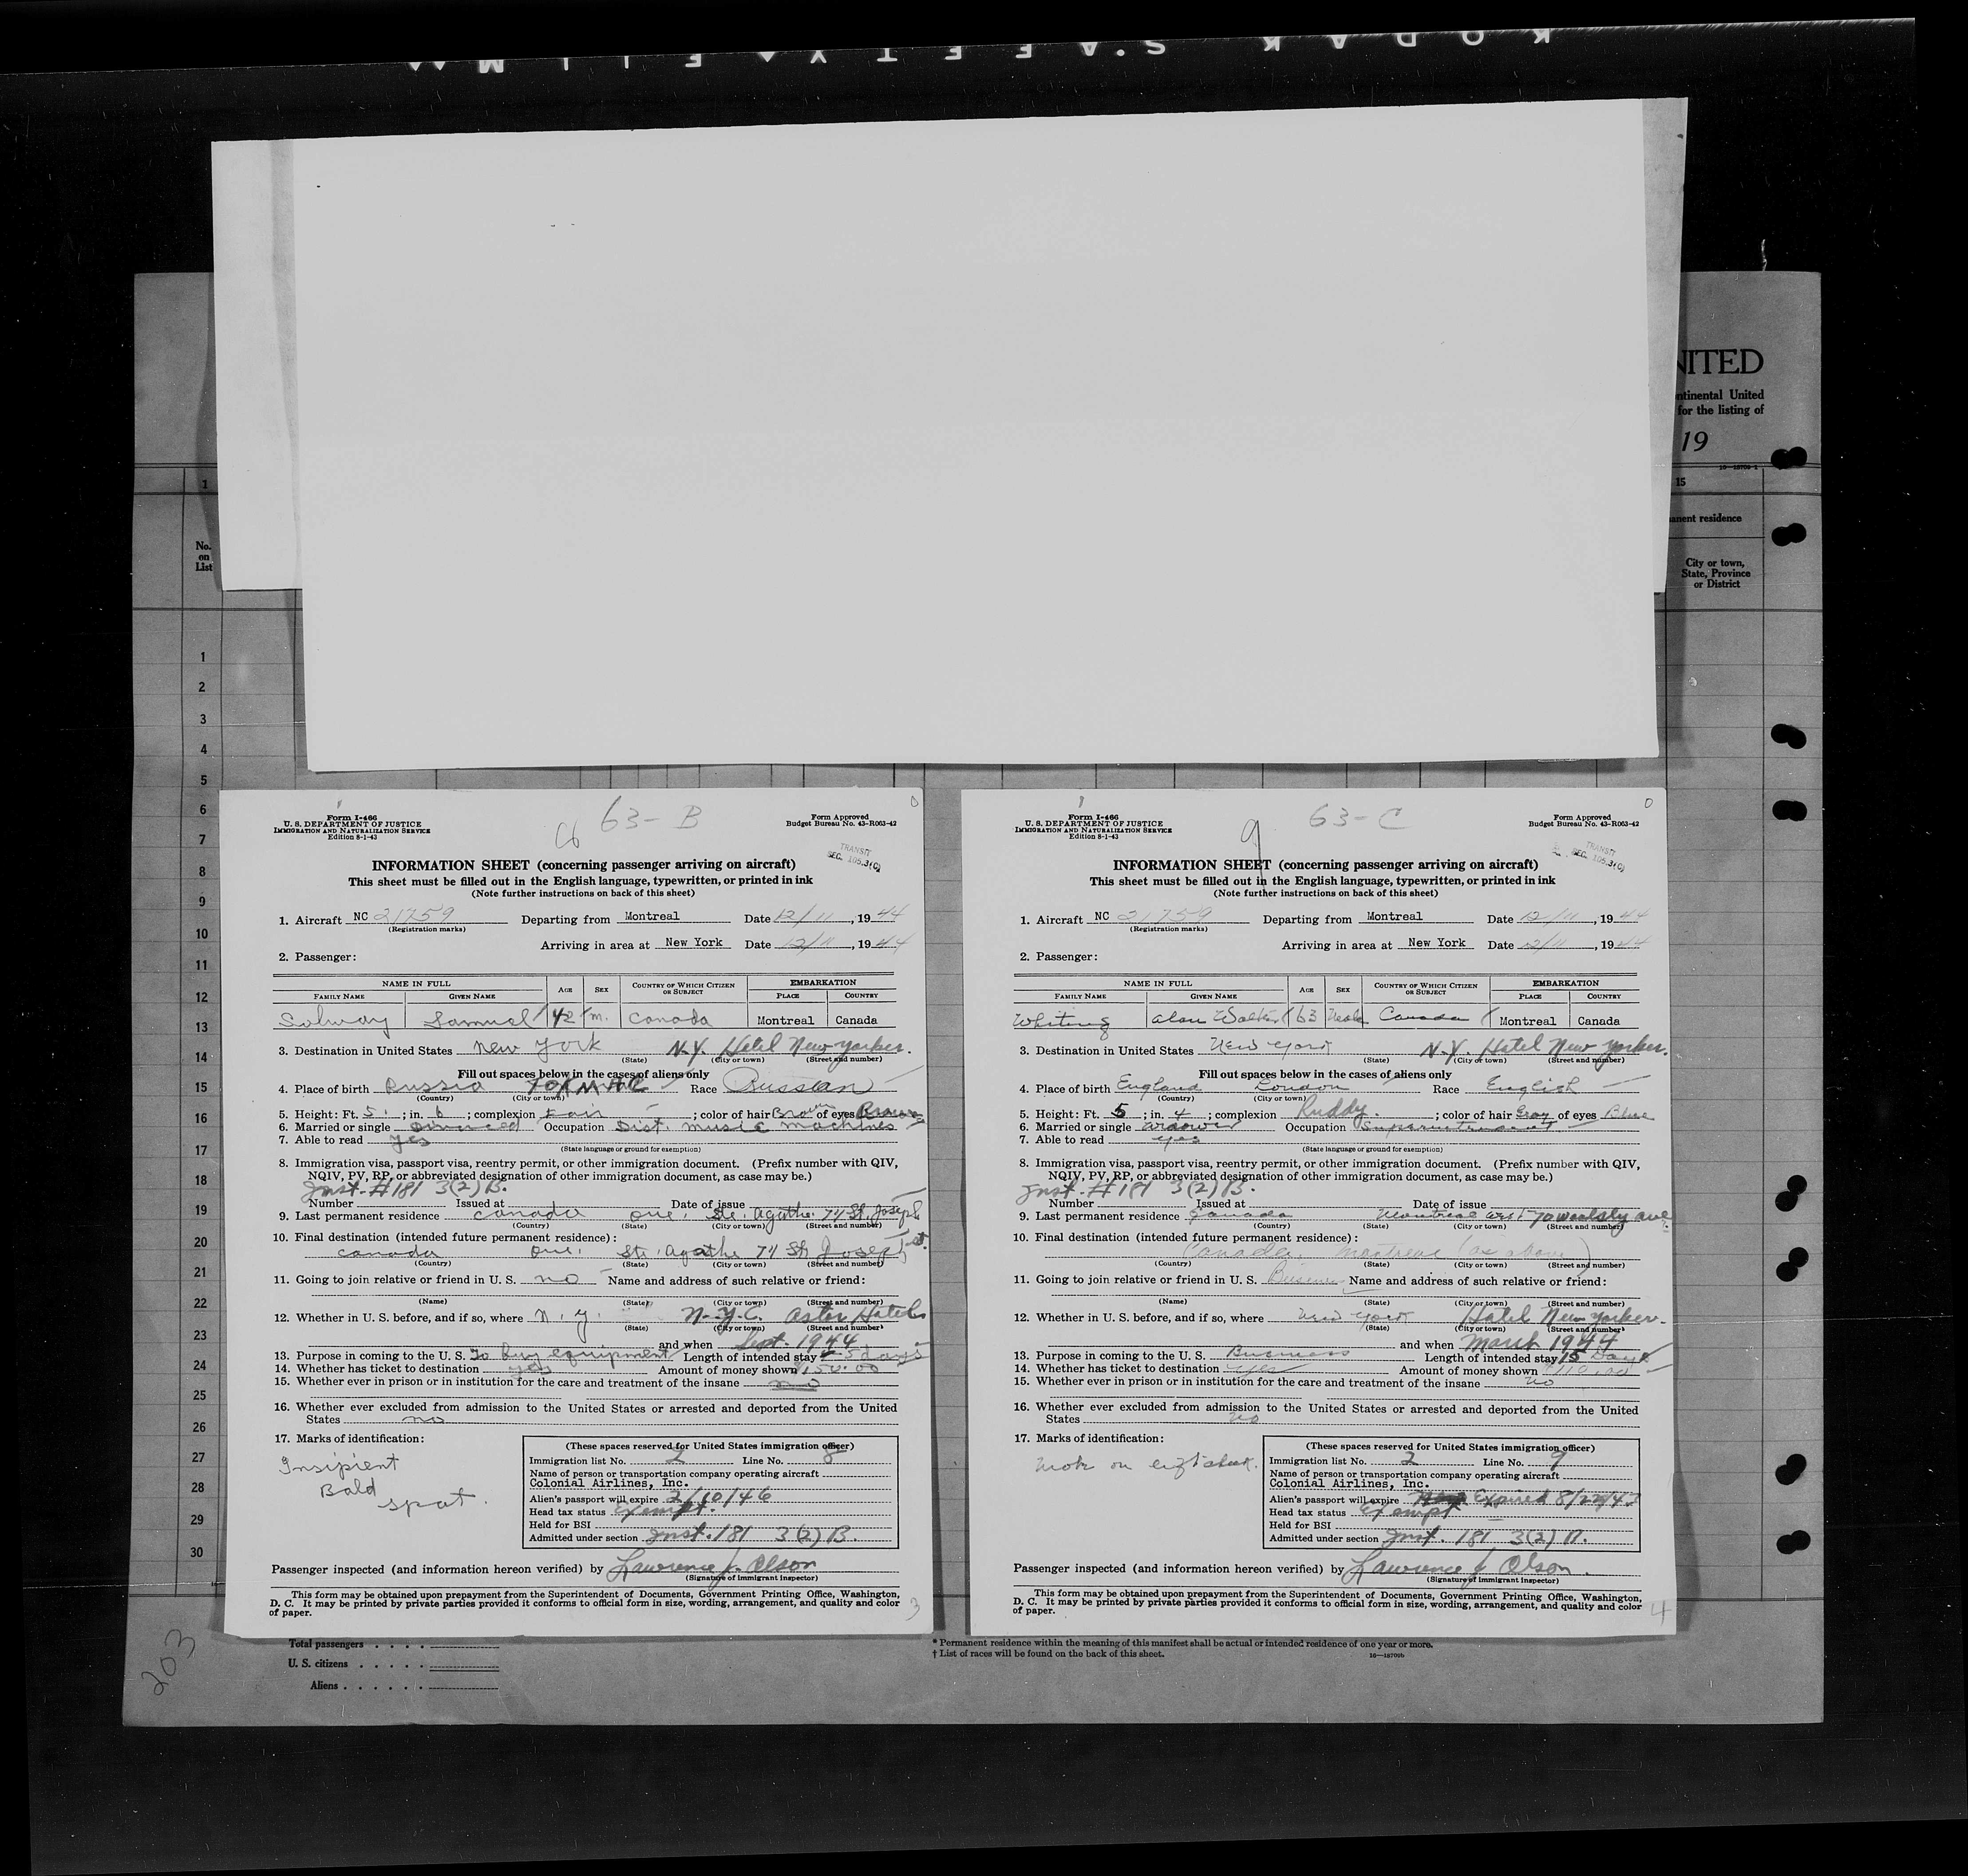 KODAK SAFETY FILM
NITED
ntinental United
for the listing of
19
1
15
anent residence
No.
on
List
City or town,
State, Province
or District
1
2
3
4
5
6
7
8
9
10
11
12
13
14
15
16
17
18
19
20
21
22
23
24
25
26
27
28
29
30
63-B
Form I-466
U. S. DEPARTMENT OF JUSTICE
IMMIGRATION AND NATURALIZATION SERVICE
Edition 8-1-43
Form Approved
Budget Bureau No. 43-R063-42
TRANSIT
SEC. 105.3(C)
INFORMATION SHEET (concerning passenger arriving on aircraft)
This sheet must be filled out in the English language, typewritten, or printed in ink
(Note further instructions on back of this sheet)
1. Aircraft NC 21759 Departing from Montreal Date 12/11, 1944
(Registration marks)
Arriving in area at New York Date 12/11, 1944
2. Passenger:
NAME IN FULL AGE SEX COUNTRY OF WHICH CITIZEN OR SUBJECT EMBARKATION
FAMILY NAME GIVEN NAME PLACE COUNTRY
Solway Samuel 42 m. Canada Montreal Canada
3. Destination in United States New York N.Y. Hotel New Yorker.
(State) (City or town) (Street and number)
Fill out spaces below in the cases of aliens only
4. Place of birth Russia Race Russian
(Country) (City or town)
5. Height: Ft. 5; in. 6; complexion Fair; color of hair Brown of eyes Brown
6. Married or single Divorced Occupation Dist. music machines
7. Able to read yes
(State language or ground for exemption)
8. Immigration visa, passport visa, reentry permit, or other immigration document. (Prefix number with QIV,
NQIV, PV, RP, or abbreviated designation of other immigration document, as case may be.)
Inst. #181 3(2)B.
Number Issued at Date of issue
9. Last permanent residence Canada Que. Ste. Agathe 74 St. Joseph
(Country) (State) (City or town) (Street and number)
10. Final destination (intended future permanent residence):
Canada Que. Ste. Agathe 74 St. Joseph st.
(Country) (State) (City or town) (Street and number)
11. Going to join relative or friend in U. S. no Name and address of such relative or friend:
(Name) (State) (City or town) (Street and number)
12. Whether in U. S. before, and if so, where N.Y. N.Y.C. Astor Hotel
(State) (City or town) (Street and number)
and when Sept. 1944
13. Purpose in coming to the U. S. To buy equipment Length of intended stay 5 days
14. Whether has ticket to destination yes Amount of money shown 150.00
15. Whether ever in prison or in institution for the care and treatment of the insane no
16. Whether ever excluded from admission to the United States or arrested and deported from the United
States no
17. Marks of identification:
Insipient
Bald
spot.
(These spaces reserved for United States immigration officer)
Immigration list No. 2 Line No. 8
Name of person or transportation company operating aircraft
Colonial Airlines, Inc.
Alien's passport will expire 2/10/46
Head tax status Exempt.
Held for BSI
Admitted under section Inst. 181 3(2)B.
Passenger inspected (and information hereon verified) by Lawrence J. Olson
(Signature of immigrant inspector)
This form may be obtained upon prepayment from the Superintendent of Documents, Government Printing Office, Washington,
D. C. It may be printed by private parties provided it conforms to official form in size, wording, arrangement, and quality and color
of paper.
3
9 63-C
Form I-466
U. S. DEPARTMENT OF JUSTICE
IMMIGRATION AND NATURALIZATION SERVICE
Edition 8-1-43
Form Approved
Budget Bureau No. 43-R063-42
TRANSIT
SEC. 105.3(C)
INFORMATION SHEET (concerning passenger arriving on aircraft)
This sheet must be filled out in the English language, typewritten, or printed in ink
(Note further instructions on back of this sheet)
1. Aircraft NC 21759 Departing from Montreal Date 12/11, 1944
(Registration marks)
Arriving in area at New York Date 12/11, 1944
2. Passenger:
NAME IN FULL AGE SEX COUNTRY OF WHICH CITIZEN OR SUBJECT EMBARKATION
FAMILY NAME GIVEN NAME PLACE COUNTRY
Whiting Alan Walter 63 Male Canada Montreal Canada
3. Destination in United States New York N.Y. Hotel New Yorker.
(State) (City or town) (Street and number)
Fill out spaces below in the cases of aliens only
4. Place of birth England London Race English
(Country) (City or town)
5. Height: Ft. 5; in. 4; complexion Ruddy.; color of hair Gray of eyes Blue
6. Married or single widower Occupation Superintendent
7. Able to read yes
(State language or ground for exemption)
8. Immigration visa, passport visa, reentry permit, or other immigration document. (Prefix number with QIV,
NQIV, PV, RP, or abbreviated designation of other immigration document, as case may be.)
Inst. #181 3(2)B.
Number Issued at Date of issue
9. Last permanent residence Canada Montreal West 70 Ave
(Country) (State) (City or town) (Street and number)
10. Final destination (intended future permanent residence):
Canada, Montreal (as above)
(Country) (State) (City or town) (Street and number)
11. Going to join relative or friend in U. S. Business Name and address of such relative or friend:
(Name) (State) (City or town) (Street and number)
12. Whether in U. S. before, and if so, where New York Hotel New Yorker.
(State) (City or town) (Street and number)
and when March 1944
13. Purpose in coming to the U. S. Business Length of intended stay 15 Days
14. Whether has ticket to destination yes Amount of money shown 110.00
15. Whether ever in prison or in institution for the care and treatment of the insane no
16. Whether ever excluded from admission to the United States or arrested and deported from the United
States no
17. Marks of identification:
Mole on cheek.
(These spaces reserved for United States immigration officer)
Immigration list No. 2 Line No. 9
Name of person or transportation company operating aircraft
Colonial Airlines, Inc.
Alien's passport will expire Expired 8/22/43
Head tax status Exempt
Held for BSI
Admitted under section Inst. 181 3(2)B.
Passenger inspected (and information hereon verified) by Lawrence J. Olson.
(Signature of immigrant inspector)
This form may be obtained upon prepayment from the Superintendent of Documents, Government Printing Office, Washington,
D. C. It may be printed by private parties provided it conforms to official form in size, wording, arrangement, and quality and color
of paper.
4
203
Total passengers
U. S. citizens
Aliens
* Permanent residence within the meaning of this manifest shall be actual or intended residence of one year or more.
† List of races will be found on the back of this sheet.
16—18709b